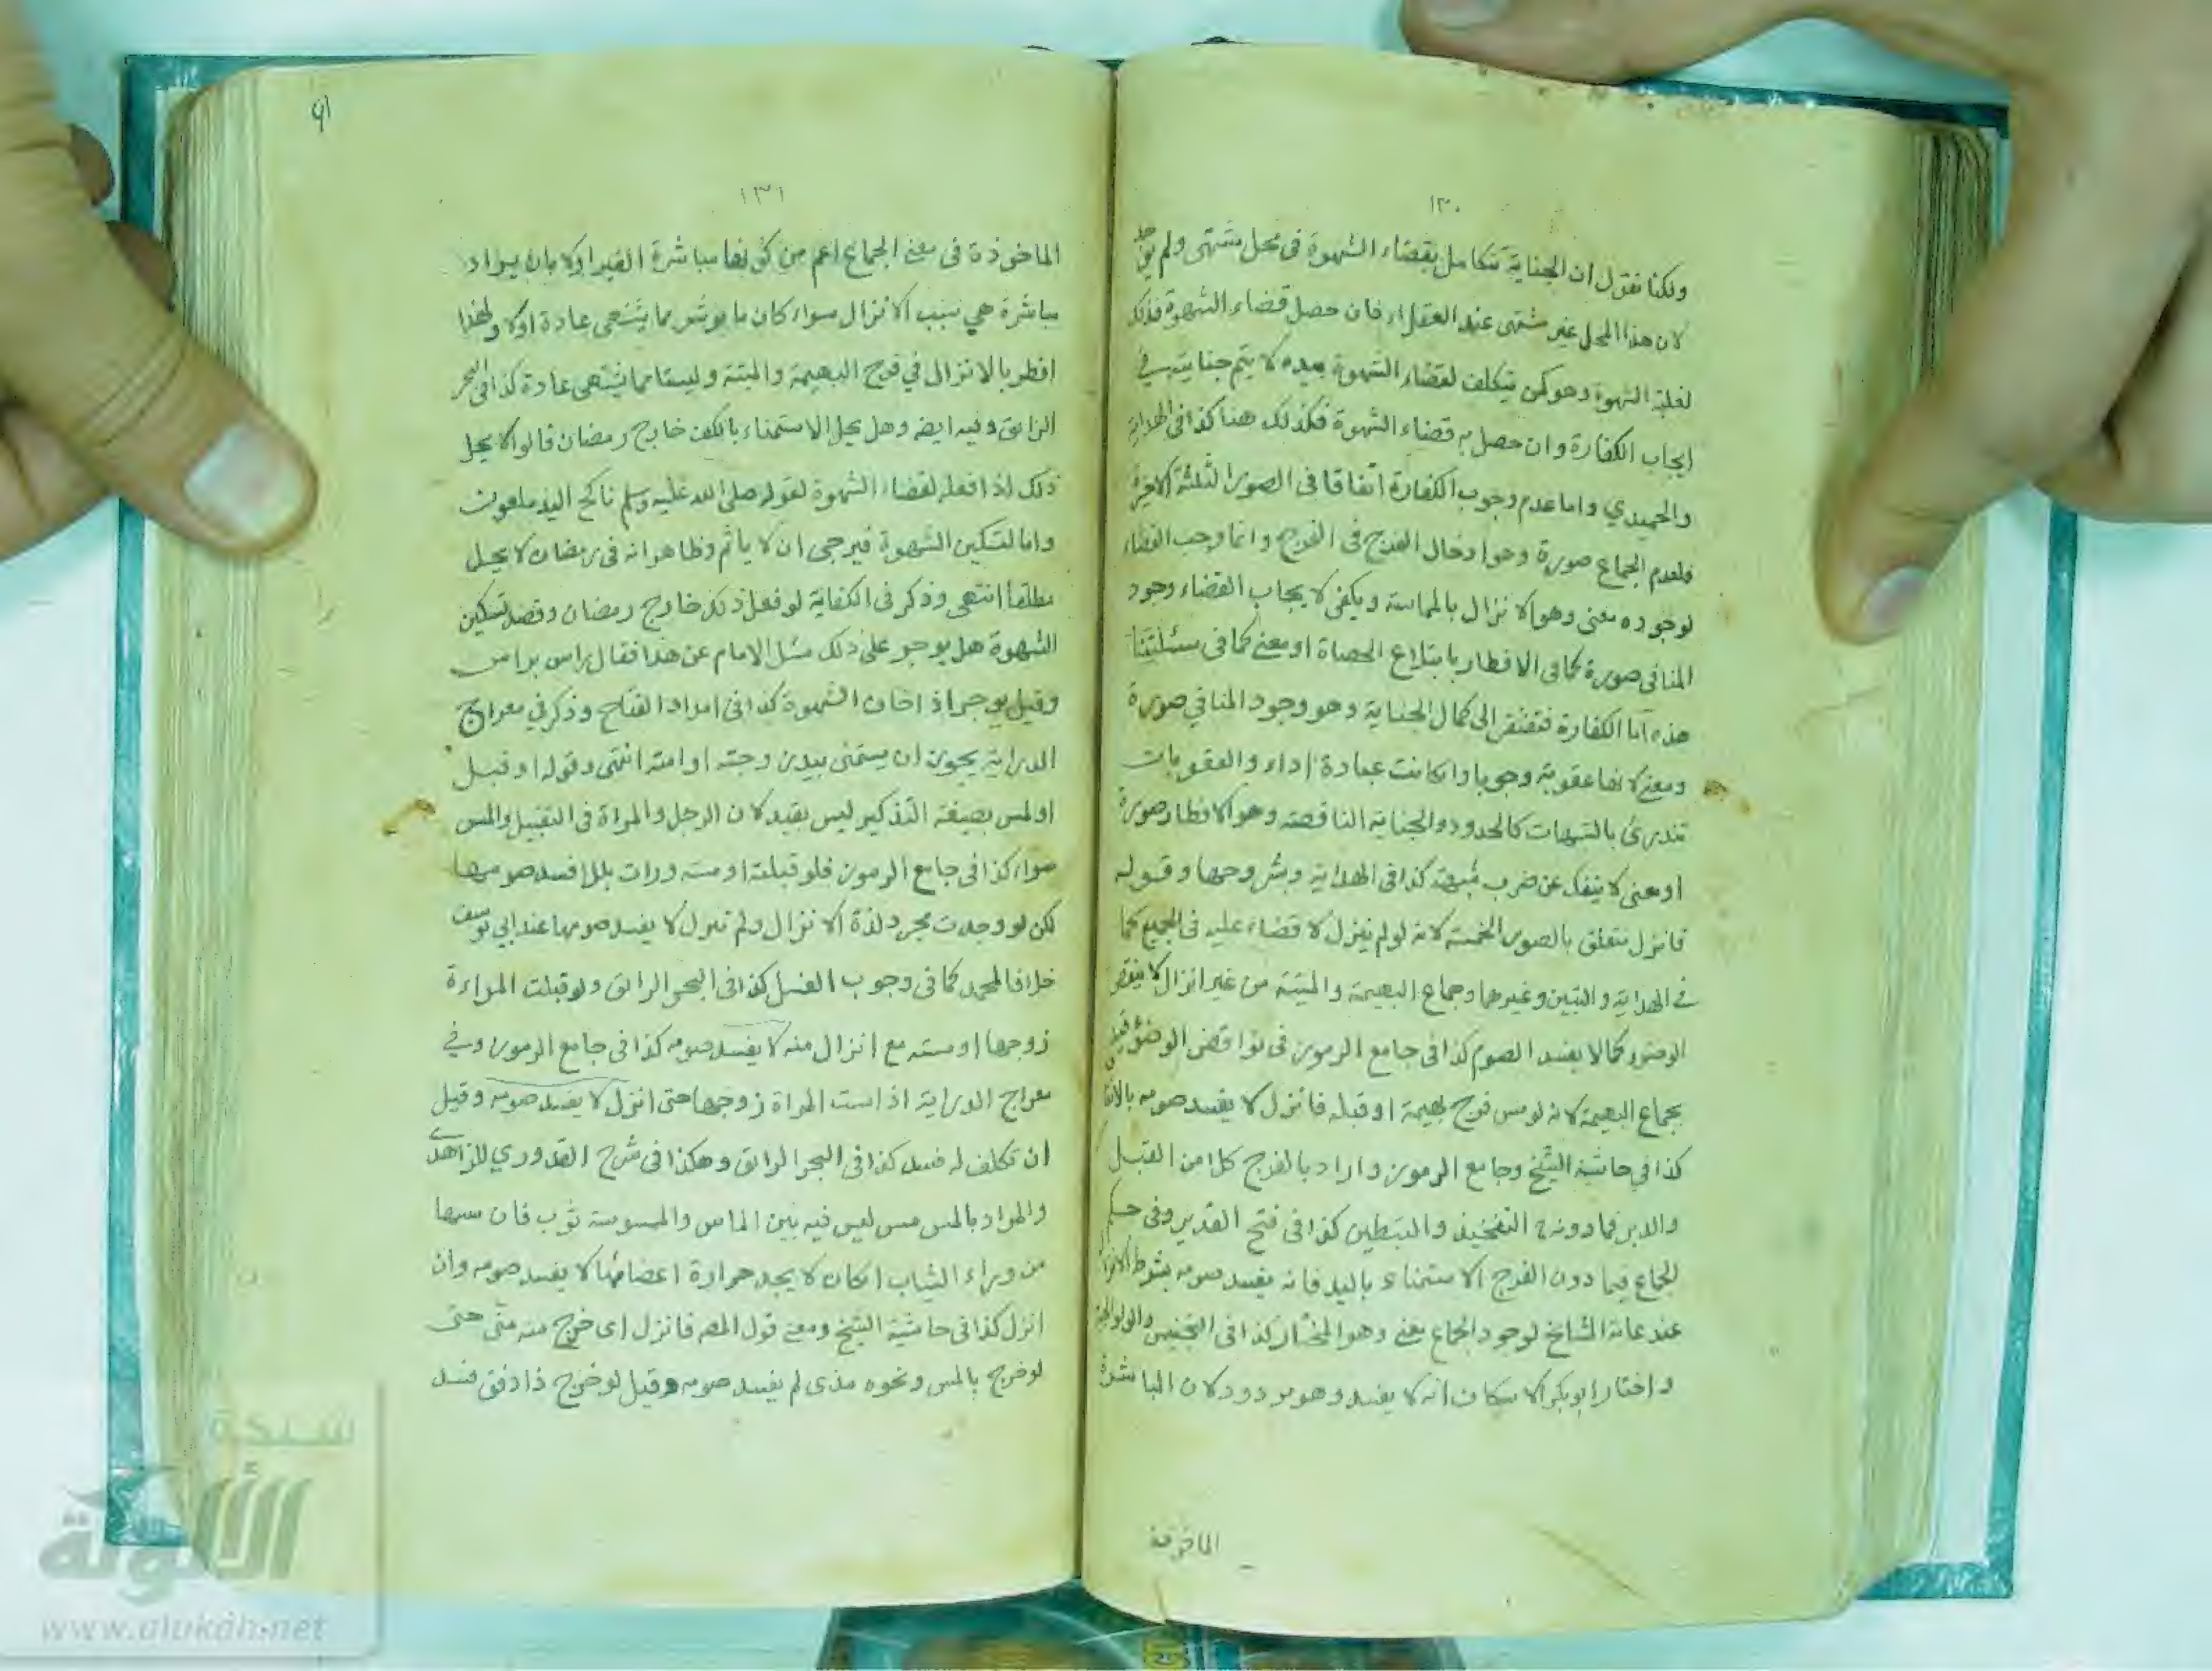 ١٣٠
ولكنا نقول ان الجناية تتكامل بقضاء الشهوة فى محل مشتهى ولم يوجد
لان هذا المحل غير مشتهى عند العقلاء فان حصل قضاء الشهوة فذلك
لغلبة الشهوة وهو كمن يتكلف لقضاء الشهوة بيده لا يتم جنايته في
ايجاب الكفارة وان حصل به قضاء الشهوة فكذلك هنا كذا فى الهداية
والحميدي واما عدم وجوب الكفارة اتفاقا فى الصور الثلثة الاخيرة
فلعدم الجماع صورة وهو ادخال الفرج فى الفرج وانما وجب القضاء
لوجوده معنى وهو الانزال بالمماسة ويكفى لايجاب القضاء وجود
المنافي صورة كما فى الافطار بابتلاع الحصاة او معنى كما فى مسئلتنا
هذه اما الكفارة فتفتقر الى كمال الجناية وهو وجود المنافي صورة
ومعنى لانها عقوبة وجوبا وان كانت عبادة اداء والعقوبات
تندرئ بالشبهات كالحدود والجناية الناقصة وهو الافطار صورة
او معنى لا ينفك عن ضرب شبهة كذا فى الهداية وشروحها وقوله
فانزل متعلق بالصور الخمسة لانه لو لم ينزل لا قضاء عليه فى الجميع كما
في الهداية والتبيين وغيرهما وجماع البهيمة والميتة من غير انزال لا ينقض
الوضوء كما لا يفسد الصوم كذا فى جامع الرموز فى نواقض الوضوء قيد
بجماع البهيمة لانه لو مس فرج بهيمة او قبله فانزل لا يفسد صومه
كذا في حاشية الشيخ وجامع الرموز واراد بالفرج كلا من القبل
والدبر فما دونه التفخيذ والتبطين كذا فى فتح القدير وفى حكم
الجماع فيما دون الفرج الاستمناء باليد فانه يفسد صومه بشرط الانزال
عند عامة المشايخ لوجود الجماع معنى وهو المختار كذا فى التجنيس والولوالجية
واختار ابو بكر الاسكاف انه لا يفسد وهو مردود لان المباشرة
الماخوذة
٩١
١٣١
الماخوذة فى معنى الجماع اعم من كونها مباشرة الغير اولا بان يراد
مباشرة هي سبب الانزال سواء كان ما بوشر مما يشتهى عادة اولا ولهذا
افطر بالانزال في فرج البهيمة والميتة وليستا مما يشتهى عادة كذا فى البحر
الرائق وفيه ايضه وهل يحل الاستمناء بالكف خارج رمضان قالوا لا يحل
ذلك اذا فعله لقضاء الشهوة لقوله صلى الله عليه وسلم ناكح اليد ملعون
واما لتسكين الشهوة فيرجى ان لا ياثم وظاهر انه فى رمضان لا يحل
مطلقا انتهى وذكر فى الكفاية لو فعل ذلك خارج رمضان وقصد تسكين
الشهوة هل يوجر على ذلك سئل الامام عن هذا فقال راس براس
وقيل يوجر اذ اخاف الشهوة كذا فى امداد الفتاح وذكر في معراج
الدراية يجوز ان يستمنى بيد زوجته او امته انتهى وقوله او قبل
او لمس بصيغة التذكير ليس بقيد لان الرجل والمراة فى التقبيل والمس
سواء كذا فى جامع الرموز فلو قبلته او مسته ورات بللا فسد صومها
لكن لو وجدت مجرد لذة الانزال ولم تنزل لا يفسد صومها عند ابي يوسف
خلافا لمحمد كما فى وجوب الغسل كذا فى البحر الرائق ولو قبلت المراءة
زوجها او مسته مع انزال منه لا يفسد صومه كذا فى جامع الرموز وفي
معراج الدراية اذ است المراة زوجها حتى انزل لا يفسد صومه وقيل
ان تكلف له فسد كذا فى البحر الرائق وهكذا فى شرح القدوري للزاهدى
والمراد بالمس مس ليس فيه بين الماس والممسوسة ثوب فان مسها
من وراء الثياب انكان لا يجد حرارة اعضائها لا يفسد صومه وان
انزل كذا فى حاشية الشيخ ومعنى قول المصه فانزل اى خرج منه منى حتى
لو خرج بالمس ونحوه مذى لم يفسد صومه وقيل لو خرج ذا دفق فسد
شبكة
الألوكة
www.alukah.net